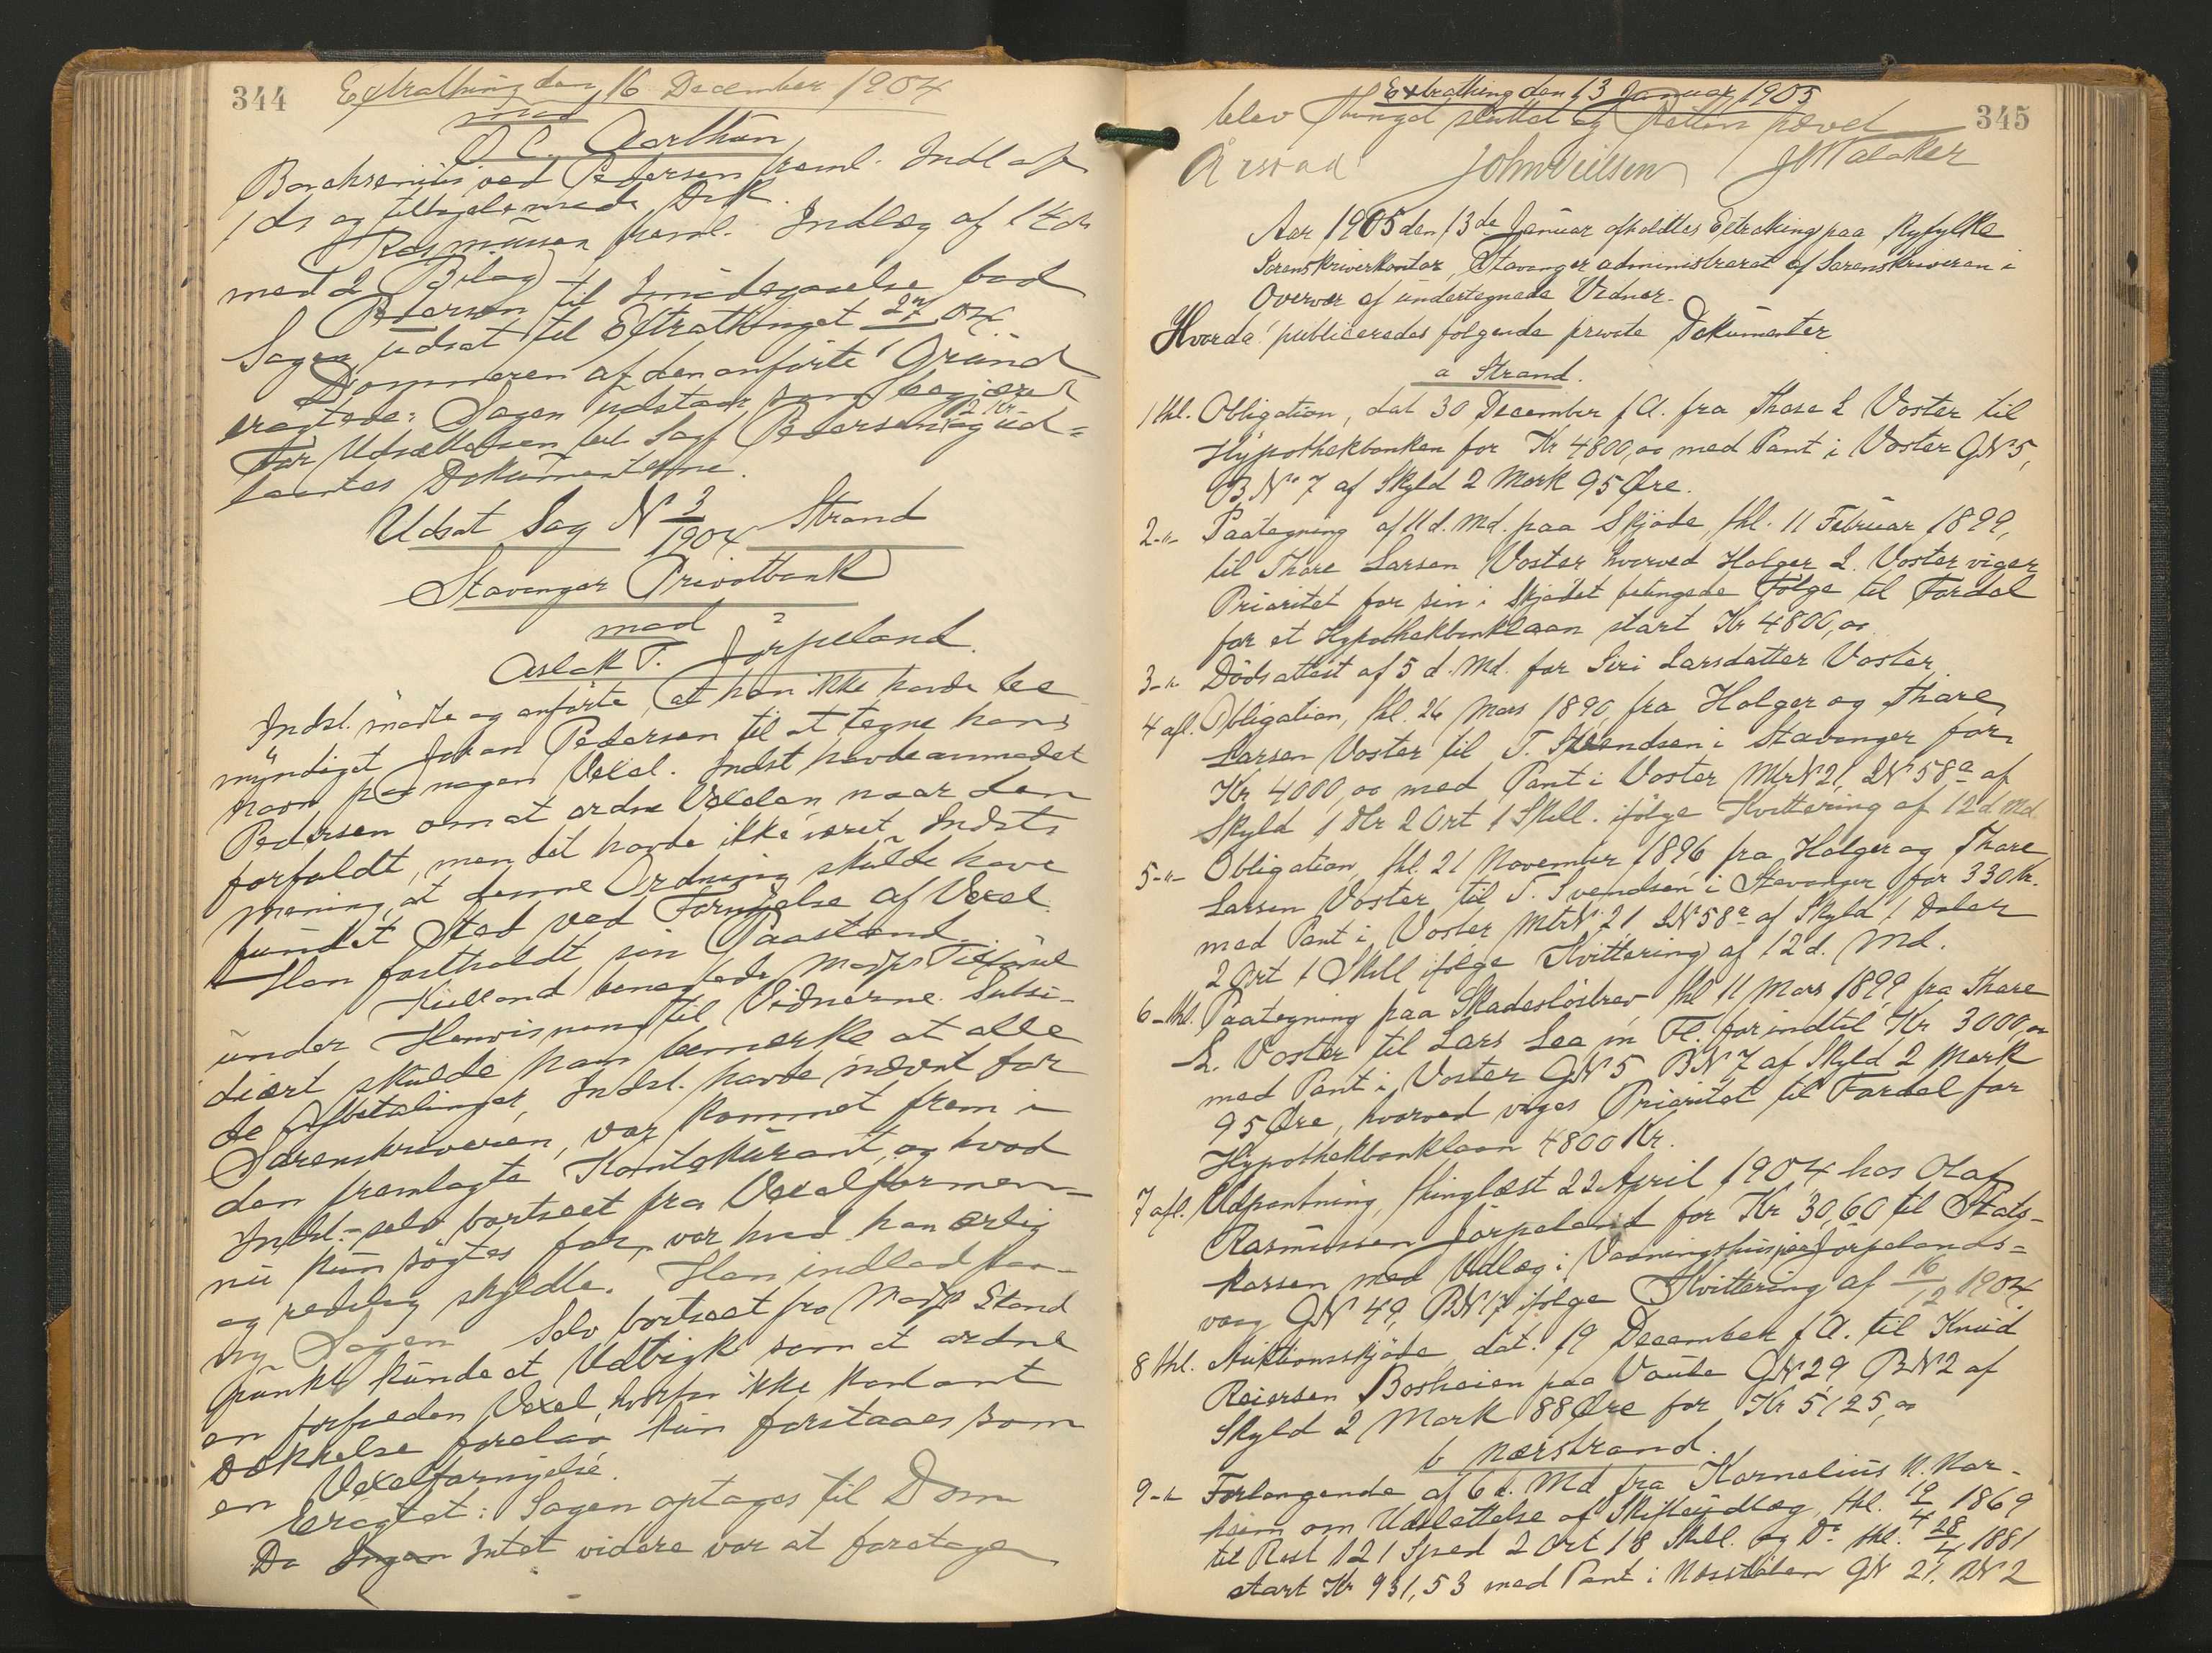 344 Extrathing den 16 December 1904
mod
O C. Aarthun
Borchrevink ved Pedersen freml. Indl af
1 ds og tilbageleverede Dok.
Rasmussen freml. Indlæg af 14 ds
med 2 Bilag
Pedersen til Imødegaaelse bad
Sagen udsat til Extrathinget 27/1 04.
Dommeren af den anførte Grund
eragtede: Sagen udstaar som begjæret
For Udsættelsen bet. Sagf. Pedersen 2 Kr og ud=
laantes Dokumenterne.
Udsat Sag N 3/1904 Strand
Stavanger Privatbank
mod
Aslak T. Jørpeland.
Indst. mødte og anførte, at han ikke havde be
myndiget Johan Pedersen til at tegne hans
Navn paa nogen Vexel. Indst havde anmodet
Pedersen om at ordne Vexelen naar den
forfaldt, men det havde ikke været Indsts
mening, at denne Ordning skulde have
fundet Sted ved Fornyelse af Vexel.
Han fastholdt sin Paastand.
Kielland benegtede Modps
under Henvisning til Vidnerne. Subsi-
diært skulde han bemerke at alle
de Afbetalinger, Indst. havde nævnt for
Sorenskriveren, var kommet frem i
den fremlagte Kontokurant, og hvad
Indst. selv bortseet fra Vexelformen
nu kun søgtes for, var hvad han ærlig
og redelig skyldte. Han indlod
Sagen Selv bortseet fra Modps Stand
punkt kunde et Udtryk som at ordne
en forfalden Vexel, hvorfor ikke kontant
Dækkelse forelaa kun forstaaes som
en Vexelfornyelse.
Eragtet: Sagen optages til Dom
Da Ingen Intet videre var at foretage
Extrathing den 13 Januar 1905 345
blev Thinget sluttet og Retten hævet
Årstad John Nilsen
Aar 1905 den 13de Januar afholdtes Extrathing paa Ryfylke
Sorenskriverkontor, Stavanger administreret af Sorenskriveren i
Overvær af undertegnede Vidner.
Hvorda publiceredes følgende private Dokumenter
a Strand.
1 thl. Obligation, dat 30 December f A. fra Thore L Voster til
Hypothekbanken for Kr 4800,00 med Pant i Voster GN 5,
B.No 7 af Skyld 2 Mark 95 Øre.
2-"- Paategning af 11 d. Md. paa Skjøde, thl. 11 Februar 1899,
til Thore Larsen Voster hvorved Holger L. Voster viger
Prioritet for sin i Skjødet betingede Følge til Fordel
for et Hypothekbanklaan stort Kr 4800,00
3-"- Dødsattest af 5 d. Md. for Siri Larsdatter Voster.
4 afl. Obligation, thl. 26 Mars 1890 fra Holger og Thore
Larsen Voster til T. Svendsen i Stavanger for
Kr 4000 00 med Pant i Voster MtrN 21, LN 58a af
Skyld 1 Dlr 2 Ort 1 Skill. ifølge Kvittering af 12 d Md.
5-"- Obligation, thl. 21 November 1896 fra Holger og Thore
Larsen Voster til T. Svendsen i Stavanger for 330 Kr.
med Pant i Voster MtrN 21 LN 58a af Skyld 1 Daler
2 Ort 1 Skill ifølge Kvittering af 12 d. Md.
6-thl. Paategning paa Skadesløsbrev thl 11 Mars 1899 fra Thore
L. Voster til Lars Lea m Fl. for indtil Kr 3000,00
med Pant i Voster GN 5 BN 7 af Skyld 2 Mark
95 Øre, hvorved viges Prioritet til Fordel for
Hypothekbanklaan 4800 Kr.
7 afl. Udpantning, thinglæst 22 April 1904 hos Olaf
Rasmussen Jørpeland for Kr 30,60 til Stats-
kassen med Udlæg i Vaaningshus paa Jørpelands=
vaag GN 49, BN 17 ifølge Kvittering af 16/12 1904
8 thl. Auktionsskjøde, dat. 19 December f A. til Knud
Reiersen Bosheien paa Vaula GN 29 BN 2 af
Skyld 2 Mark 88 Øre for Kr 5125,00
b Nærstrand.
9-"- Forlangende af 6 d. Md fra Kornelius N. Nor-
heim om Udslettelse af Skifteudlæg, thl. 19/4 1869
til Rest 121 Sped 2 Ort 18 Skill. og Do thl. 28/4 1881
stort Kr 931,53 med Pant i GN 21. BN 2